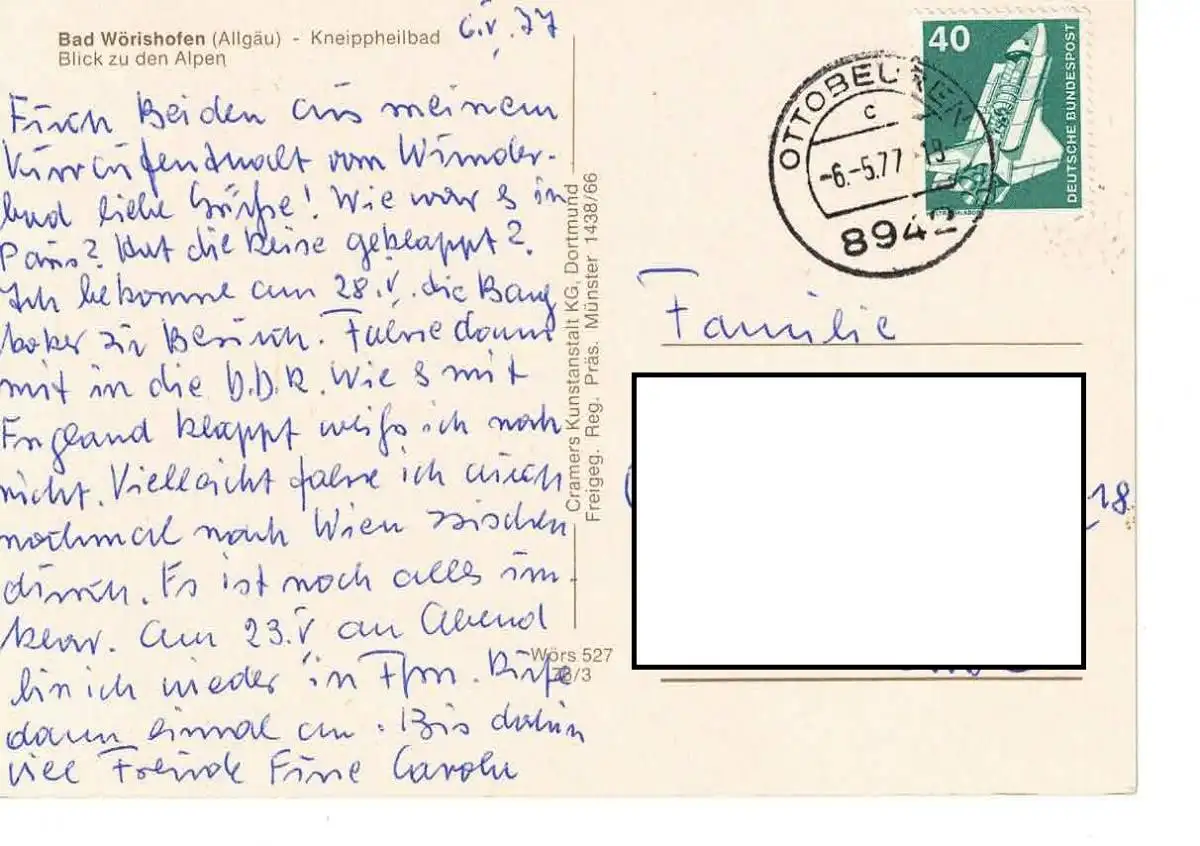 Bad Wörishofen (Allgäu) - Kneippheilbad
Blick zu den Alpen
6.V.77
Euch Beiden aus meinem
Kuraufenthalt vom Wunder-
bad liebe Grüße! Wie war's in
Paris? Hat die Reise geklappt?
Ich bekomme am 28.V. die
zu Besuch. Fahre dann
mit in die D.D.R. Wie's mit
England klappt weiß ich noch
nicht. Vielleicht fahre ich auch
nochmal nach Wien zwischen
durch. Es ist noch alles un-
klar. Am 23.V an Abend
bin ich wieder in Ffm. Rufe
dann einmal an. Bis dahin
viel Freude Eure
Cramers Kunstanstalt KG, Dortmund
Freigeg. Reg. Präs. Münster 1438/66
Wörs 527
/3
OTTOBEUREN
c
-6.-5.77-18
8942
40
DEUTSCHE BUNDESPOST
Familie
18.